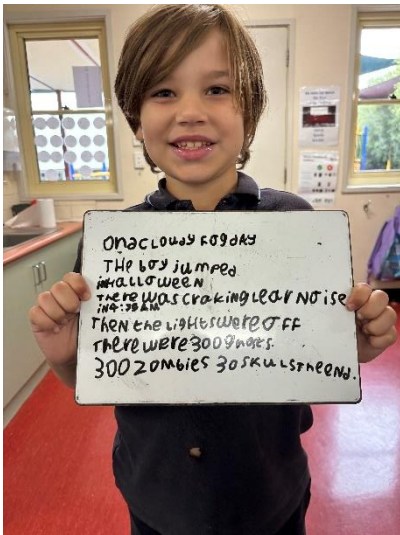 onacloudy fogday
THe boy jumped
inHalloween
THere was craking lear noise
in4:75AM
Then the lights were off
There were 300 ghosts.
300 zombies 30 skulstheend.